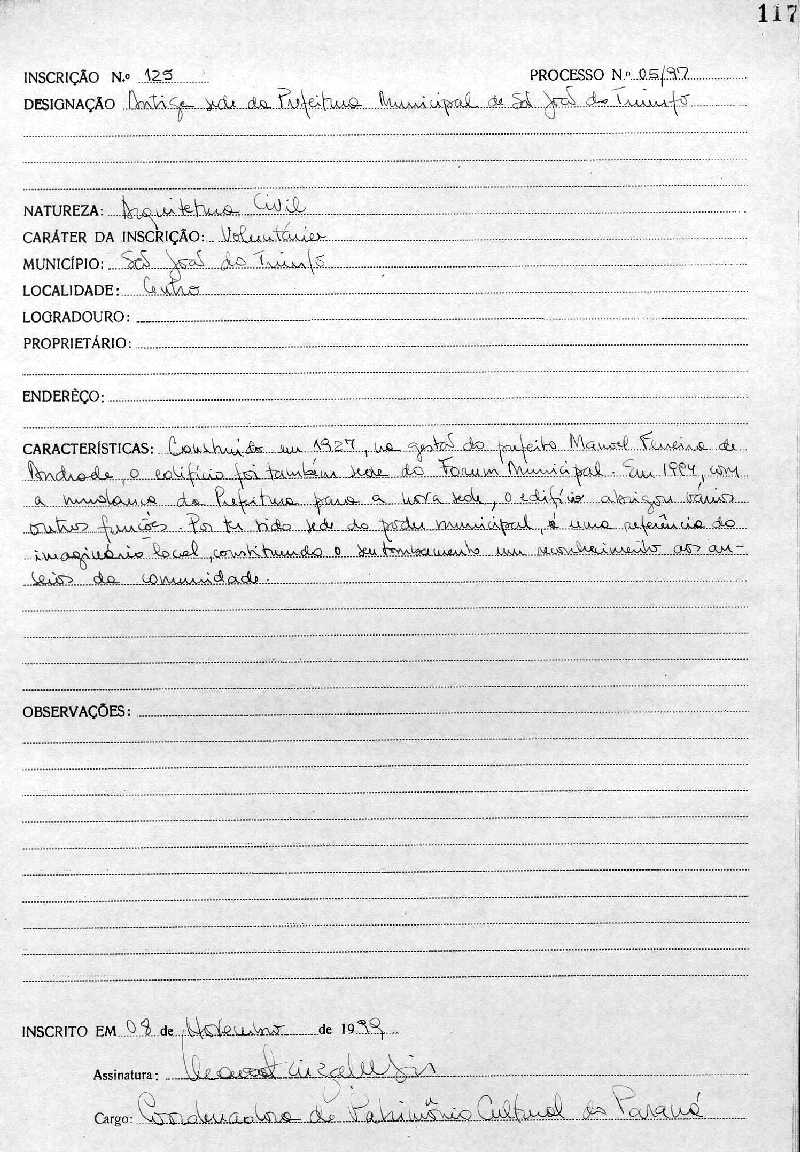 117
INSCRIÇÃO N.º 125 PROCESSO N.º 05/97
DESIGNAÇÃO Antiga sede da Prefeitura Municipal de São João do Triunfo
NATUREZA: Arquitetura Civil
CARÁTER DA INSCRIÇÃO: Voluntária
MUNICÍPIO: São João do Triunfo
LOCALIDADE: Centro
LOGRADOURO:
PROPRIETÁRIO:
ENDERÊÇO:
CARACTERÍSTICAS: Construído em 1927, na gestão do prefeito Manoel Ferreira de
Andrade, o edifício foi também sede do Forum Municipal. Em 1994, com
a mudança da Prefeitura para a nova sede, o edifício abrigou vários
outros funções. Por ter sido sede do poder municipal, é uma referência do
imaginário local, constituindo o seu tombamento um reconhecimento aos an-
seios da comunidade.
OBSERVAÇÕES:
INSCRITO EM 08 de Novembro de 1999
Assinatura:
Cargo: Coordenadora de Patrimônio Cultural do Paraná